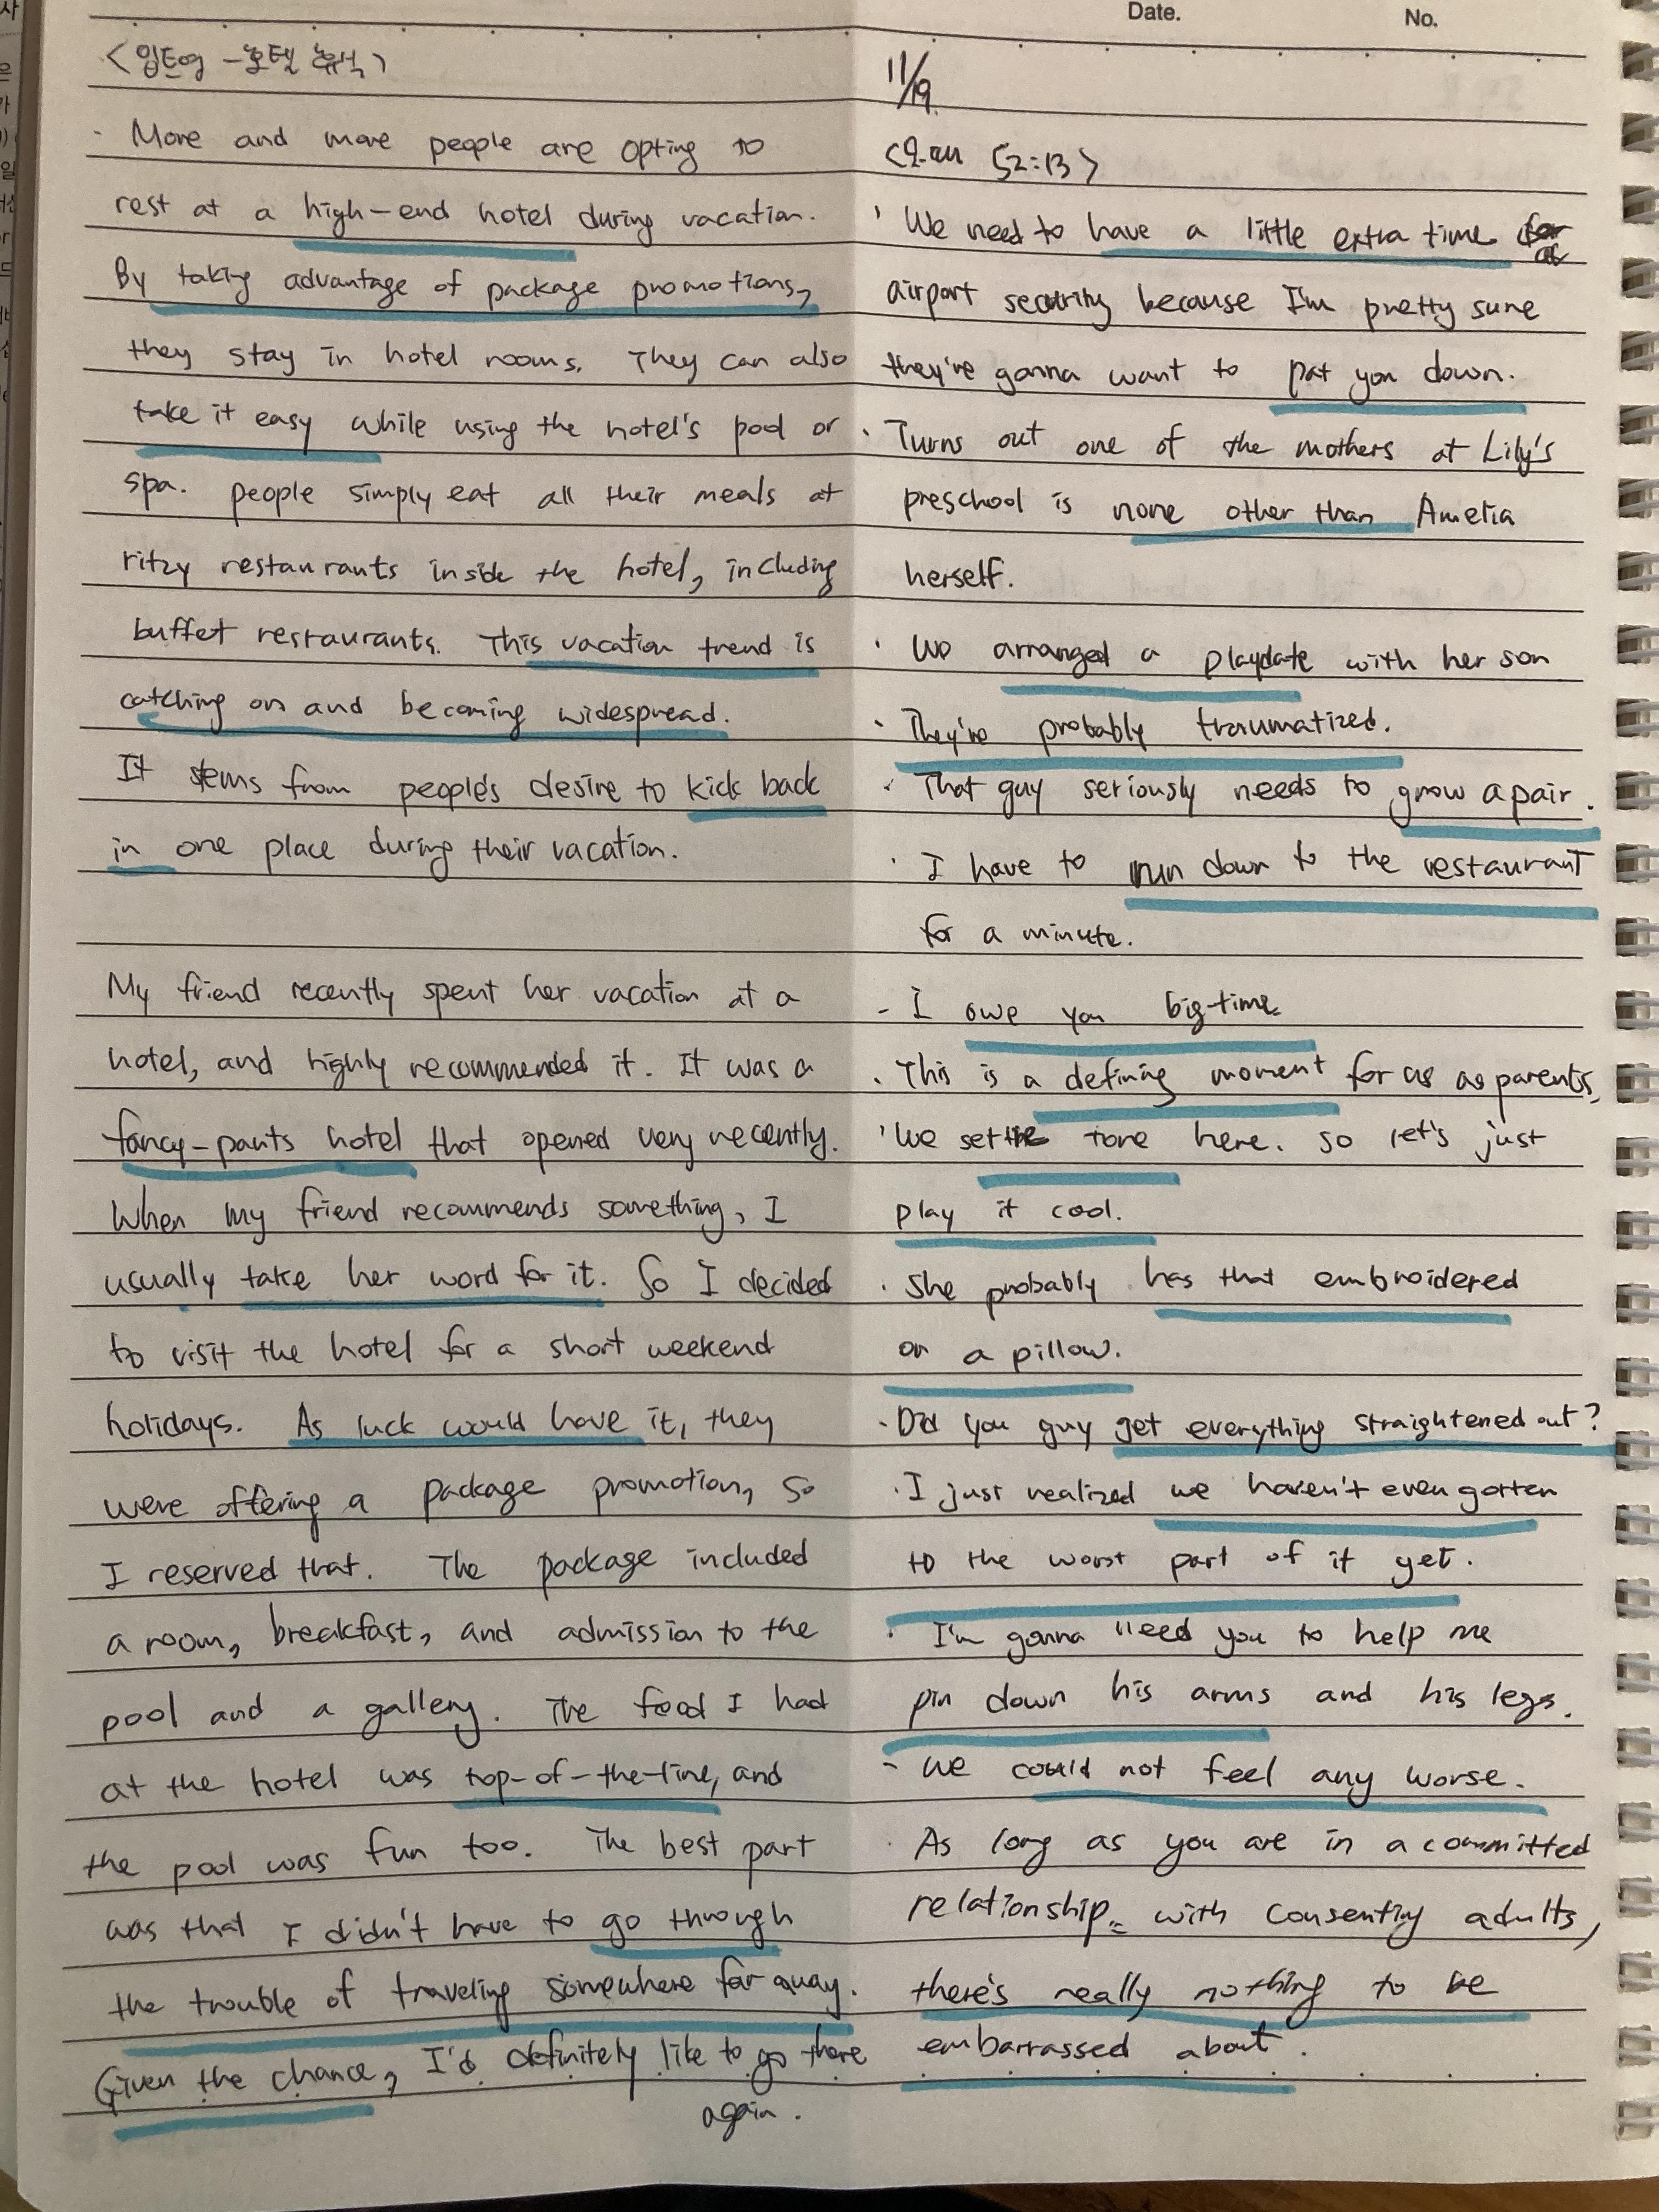 Date. No.
<입트영 - 호텔 휴식>
· More and more people are opting to
rest at a high-end hotel during vacation.
By taking advantage of package promotions,
they stay in hotel rooms. They can also
take it easy while using the hotel's pool or
spa. people simply eat all their meals at
ritzy restaurants inside the hotel, including
buffet restaurants. This vacation trend is
catching on and becoming widespread.
It stems from people's desire to kick back
in one place during their vacation.
My friend recently spent her vacation at a
hotel, and highly recommended it. It was a
fancy-pants hotel that opened very recently.
When my friend recommends something, I
usually take her word for it. So I decided
to visit the hotel for a short weekend
holidays. As luck would have it, they
were offering a package promotion, so
I reserved that. The package included
a room, breakfast, and admission to the
pool and a gallery. The food I had
at the hotel was top-of-the-line, and
the pool was fun too. The best part
was that I didn't have to go through
the trouble of traveling somewhere far away.
Given the chance, I'd definitely like to go there
again.
11/19.
52:13>
· We need to have a little extra time at
airport security because I'm pretty sure
they're gonna want to pat you down.
· Turns out one of the mothers at Lily's
preschool is none other than Amelia
herself.
· We arranged a playdate with her son
· They're probably traumatized.
· That guy seriously needs to grow a pair.
· I have to run down to the restaurant
for a minute.
- I owe you big-time
· This is a defining moment for us as parents,
· We set the tone here. so let's just
play it cool.
· She probably has that embroidered
on a pillow.
· Did you guy get everything straightened out?
· I just realized we haven't even gotten
to the worst part of it yet.
· I'm gonna need you to help me
pin down his arms and his legs.
- We could not feel any worse.
· As long as you are in a committed
relationship with consenting adults,
there's really nothing to be
embarrassed about.